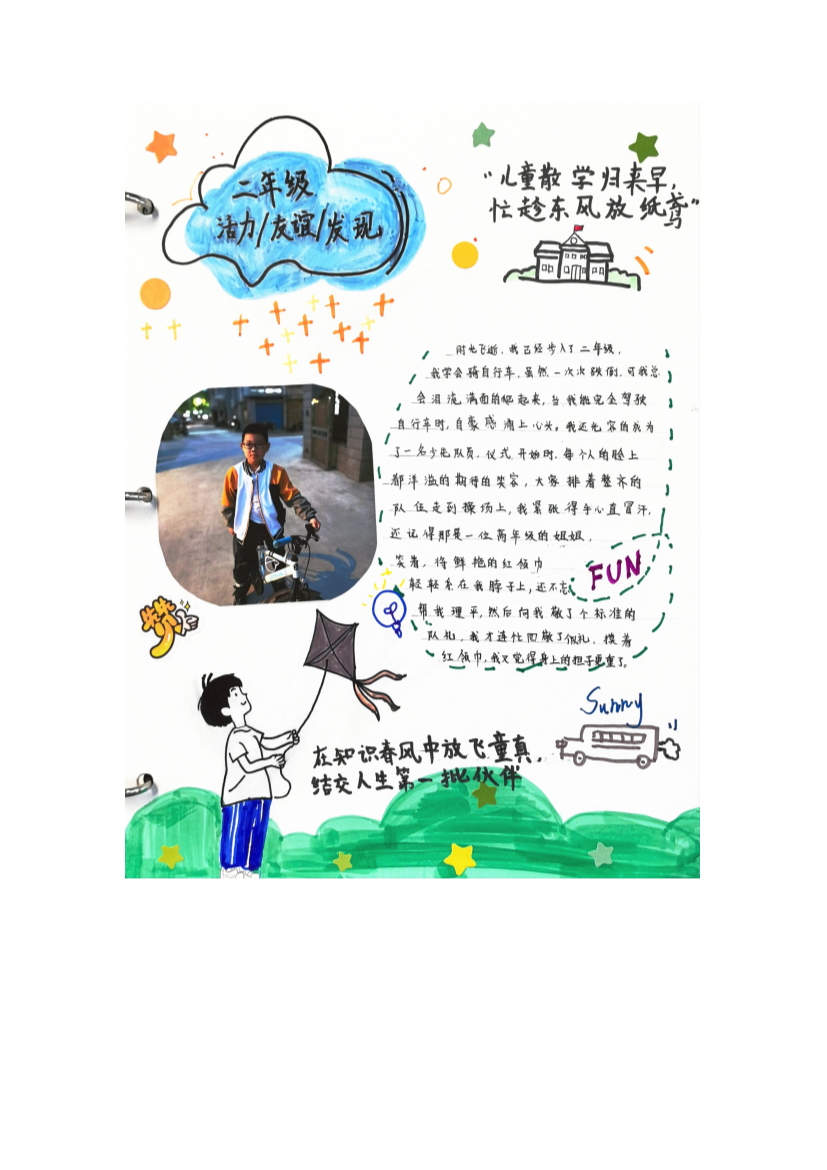 二年级
活力/友谊/发现
"儿童散学归来早,
忙趁东风放纸鸢"
时光飞逝,我已经步入了二年级,
我学会骑自行车,虽然一次次跌倒,可我总
会泪流满面的爬起来,当我能完全驾驶
自行车时,自豪感涌上心头。我还光容的成为
了一名少先队员,仪式开始时,每个人的脸上
都洋溢的期待的笑容,大家排着整齐的
队伍走到操场上,我紧张得手心直冒汗,
还记得那是一位高年级的姐姐,
笑着,将鲜艳的红领巾
轻轻系在我脖子上,还不忘
帮我理平,然后向我敬了个标准的
队礼,我才连忙回敬了队礼,摸着
红领巾,我又觉得身上的担子更重了。
FUN
赞
Sunny
在知识春风中放飞童真,
结交人生第一批伙伴